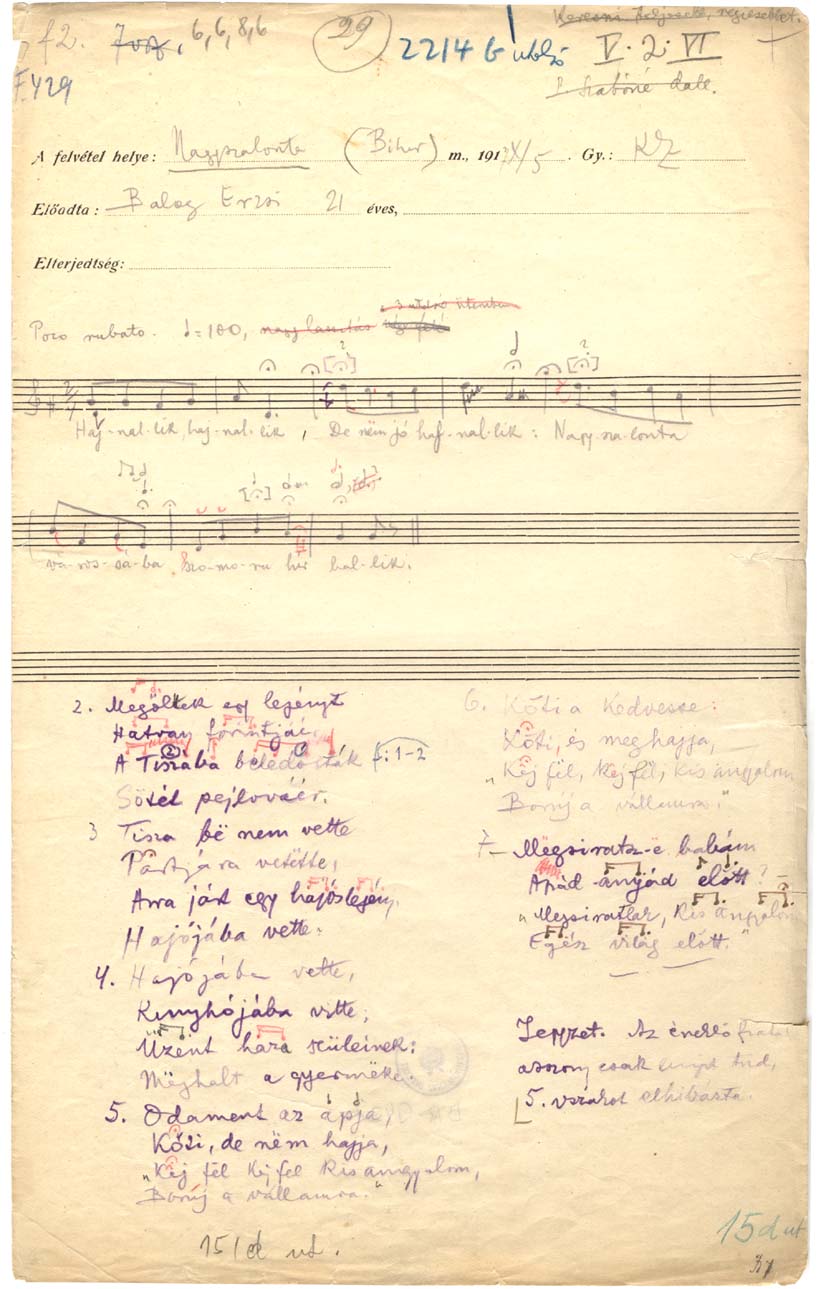 f2. 6, 6, 8, 6 29 2214 G V. 2. VI
F.429
A felvétel helye: Nagyszalonta (Bihar) m., 191 X/5. Gy.: KZ
Előadta: Balog Erzsi 21 éves,
Elterjedtség:
Poco rubato. = 180, nagy lassítás
Haj-nal-lik, haj-nal-lik, De nëm jó haj-nal-lik: Nagy-sza-lonta
vá-ros-sá-ba Szo-mo-ru hír hal-lik.
2. Megöltek egy legényt
Hatvan forintjáé,
A Tiszába beledobták f: 1-2
Sötét pejlováér.
3 Tisza bë nem vette
Partjára vetëtte,
Arra járt egy hajóslegény,
Hajójába vette.
4. Hajójába vette,
Kunyhójába vitte;
Üzent haza szüleinek:
Mëghalt a gyermëke.
5. Odament az apja,
Kőti, de nëm hajja,
"Kej fël kej fel kis angyalom,
Borúj a vállamra."
6. Kőti a Kedvesse:
Kőti, és meghajja,
"Kej fël, kej fël, kis angyalom
Borúj a vállamra."
7- Mëgsiratsz-ë babám
Apád anyád előtt?
"Mëgsiratlak, kis angyalom
Egész világ előtt."
Jegyzet. Az éneklő fiatal
asszony csak ennyit tud,
5. vszakot elhibázta.
15/d ut.
15d ut